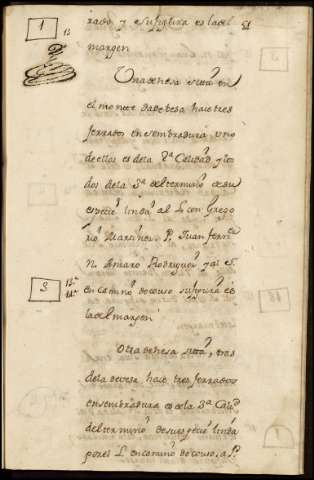 1
rado y su figura es la del
51
margen
Una dehesa sitta en
el monte da devesa hace tres
ferrados en sembradura uno
de ellos es de la 2ª Calidad y los
dos de la 3ª del termino de su
especie linda al L con Grego
rio Martinez P. Juan ferrnz
N. Amaro Rodriguez y al S.
3
en camino de couso su figura es
la del margen
Otra dehesa sitta, tras
de la devesa hace tres ferrados
en sembradura es de la 3ª Calid
del termino de su especie linda
por el L en camino de couso, a P.